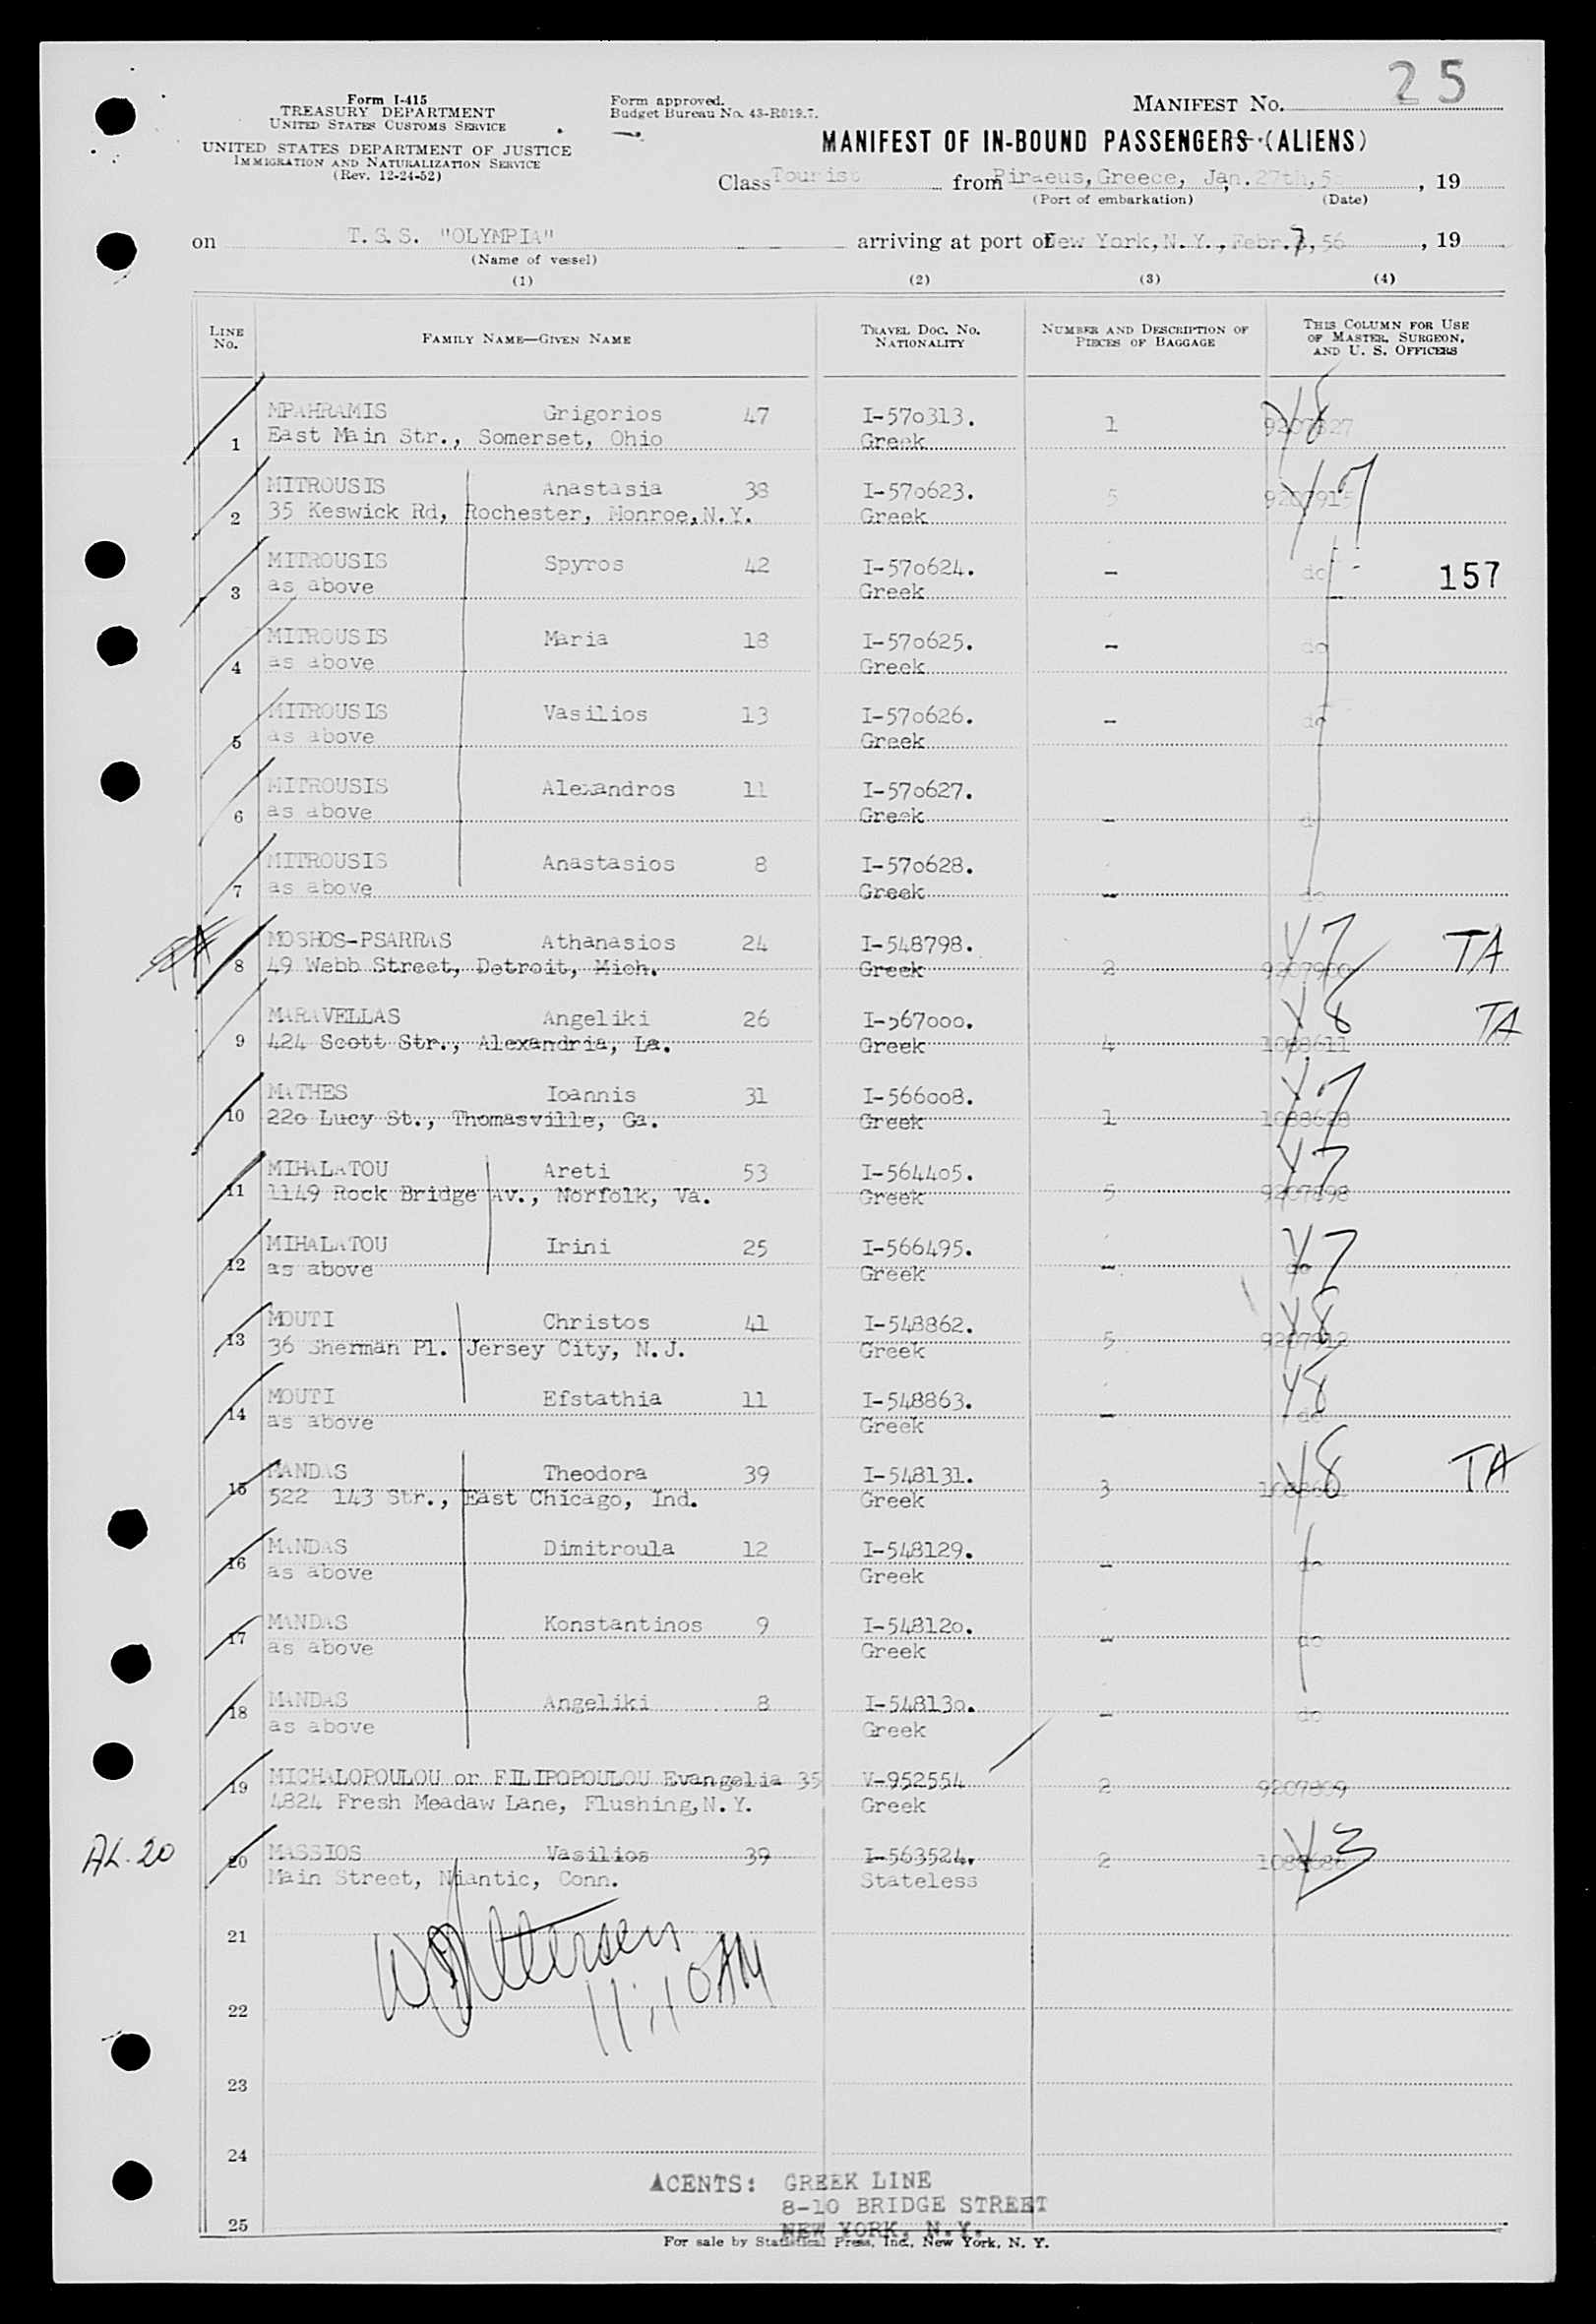 25
Form I-415
TREASURY DEPARTMENT
UNITED STATES CUSTOMS SERVICE
UNITED STATES DEPARTMENT OF JUSTICE
IMMIGRATION AND NATURALIZATION SERVICE
(Rev. 12-24-52)
Form approved.
Budget Bureau No. 43-R019.7.
MANIFEST NO.
MANIFEST OF IN-BOUND PASSENGERS (ALIENS)
Class Tourist from Piraeus, Greece, Jan. 27th, 5 , 19
(Port of embarkation) (Date)
on T.S.S. "OLYMPIA" arriving at port of New York, N.Y., Febr. 7, 56 , 19
(Name of vessel)
(1) (2) (3) (4)
LINE NO. FAMILY NAME—GIVEN NAME TRAVEL DOC. NO. NATIONALITY NUMBER AND DESCRIPTION OF PIECES OF BAGGAGE THIS COLUMN FOR USE OF MASTER, SURGEON, AND U. S. OFFICERS
MPAHRAMIS Grigorios 47 I-570313. 1 Y8
1 East Main Str., Somerset, Ohio Greek
MITROUSIS Anastasia 38 I-570623. 5 9207915 Y7
2 35 Keswick Rd, Rochester, Monroe, N.Y. Greek
MITROUSIS Spyros 42 I-570624. – do 157
3 as above Greek
MITROUSIS Maria 18 I-570625. – do
4 as above Greek
MITROUSIS Vasilios 13 I-570626. – do
5 as above Greek
MITROUSIS Alexandros 11 I-570627.
6 as above Greek – do
MITROUSIS Anastasios 8 I-570628.
7 as above Greek – do
MOSHOS-PSARRAS Athanasios 24 I-548798. Y7 TA
8 49 Webb Street, Detroit, Mich. Greek 2 9207900
MARAVELLAS Angeliki 26 I-567000. Y8 TA
9 424 Scott Str., Alexandria, La. Greek 4 1088611
MATHES Ioannis 31 I-566008. Y7
10 220 Lucy St., Thomasville, Ga. Greek 1 1088628
MIHALATOU Areti 53 I-564405. Y7
11 1149 Rock Bridge Av., Norfolk, Va. Greek 5 9207898
MIHALATOU Irini 25 I-566495. Y7
12 as above Greek – do
MOUTI Christos 41 I-548862. Y8
13 36 Sherman Pl. Jersey City, N.J. Greek 5 9207912
MOUTI Efstathia 11 I-548863. Y8
14 as above Greek – do
MANDAS Theodora 39 I-548131. Y8 TA
15 522 143 Str., East Chicago, Ind. Greek 3
MANDAS Dimitroula 12 I-548129.
16 as above Greek – do
MANDAS Konstantinos 9 I-548120.
17 as above Greek – do
MANDAS Angeliki 8 I-548130.
18 as above Greek – do
MICHALOPOULOU or FILIPOPOULOU Evangelia 35 V-952554
19 4824 Fresh Meadaw Lane, Flushing, N.Y. Greek 2 9207899
AL-20
MASSIOS Vasilios 39 I-563524. 2 Y3
20 Main Street, Niantic, Conn. Stateless
21
11:10 AM
22
23
24
AGENTS: GREEK LINE
8-10 BRIDGE STREET
25 NEW YORK, N.Y.
For sale by Statistical Press, Inc., New York, N. Y.